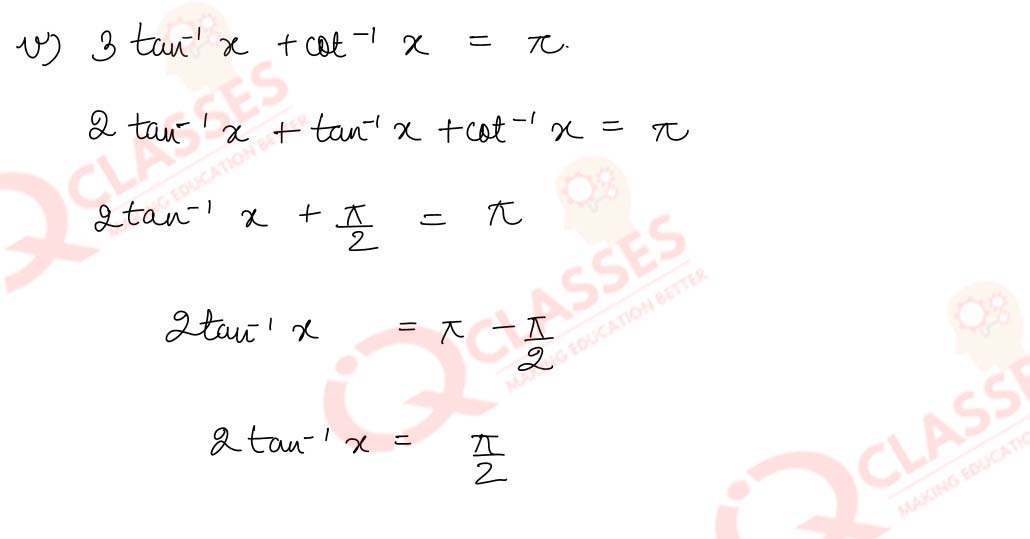 v) 3 tan⁻¹ x + cot⁻¹ x = π.
2 tan⁻¹ x + tan⁻¹ x + cot⁻¹ x = π
2 tan⁻¹ x + π/2 = π
2 tan⁻¹ x = π - π/2
2 tan⁻¹ x = π/2
IQ CLASSES
MAKING EDUCATION BETTER
IQ CLASSES
MAKING EDUCATION BETTER
Q CLASSES
MAKING EDUCATIO